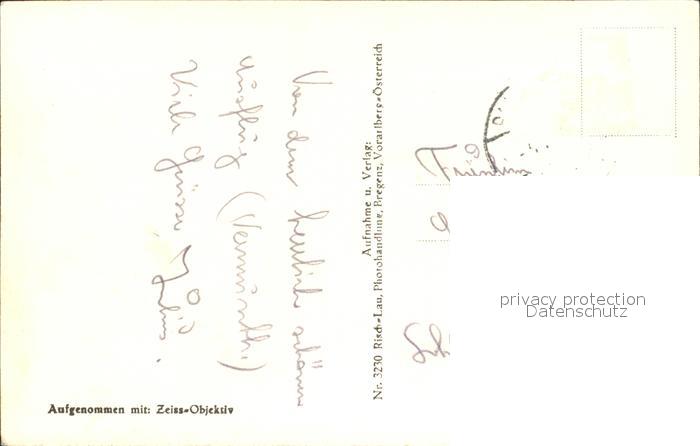 Von dem herrlich schönen
Ausflug (Vermunth.)
Viele Grüsse
Aufnahme u. Verlag:
Nr. 3230 Risch-Lau, Photohandlung, Bregenz, Vorarlberg-Österreich
Fräulein
privacy protection
Datenschutz
Aufgenommen mit: Zeiss-Objektiv